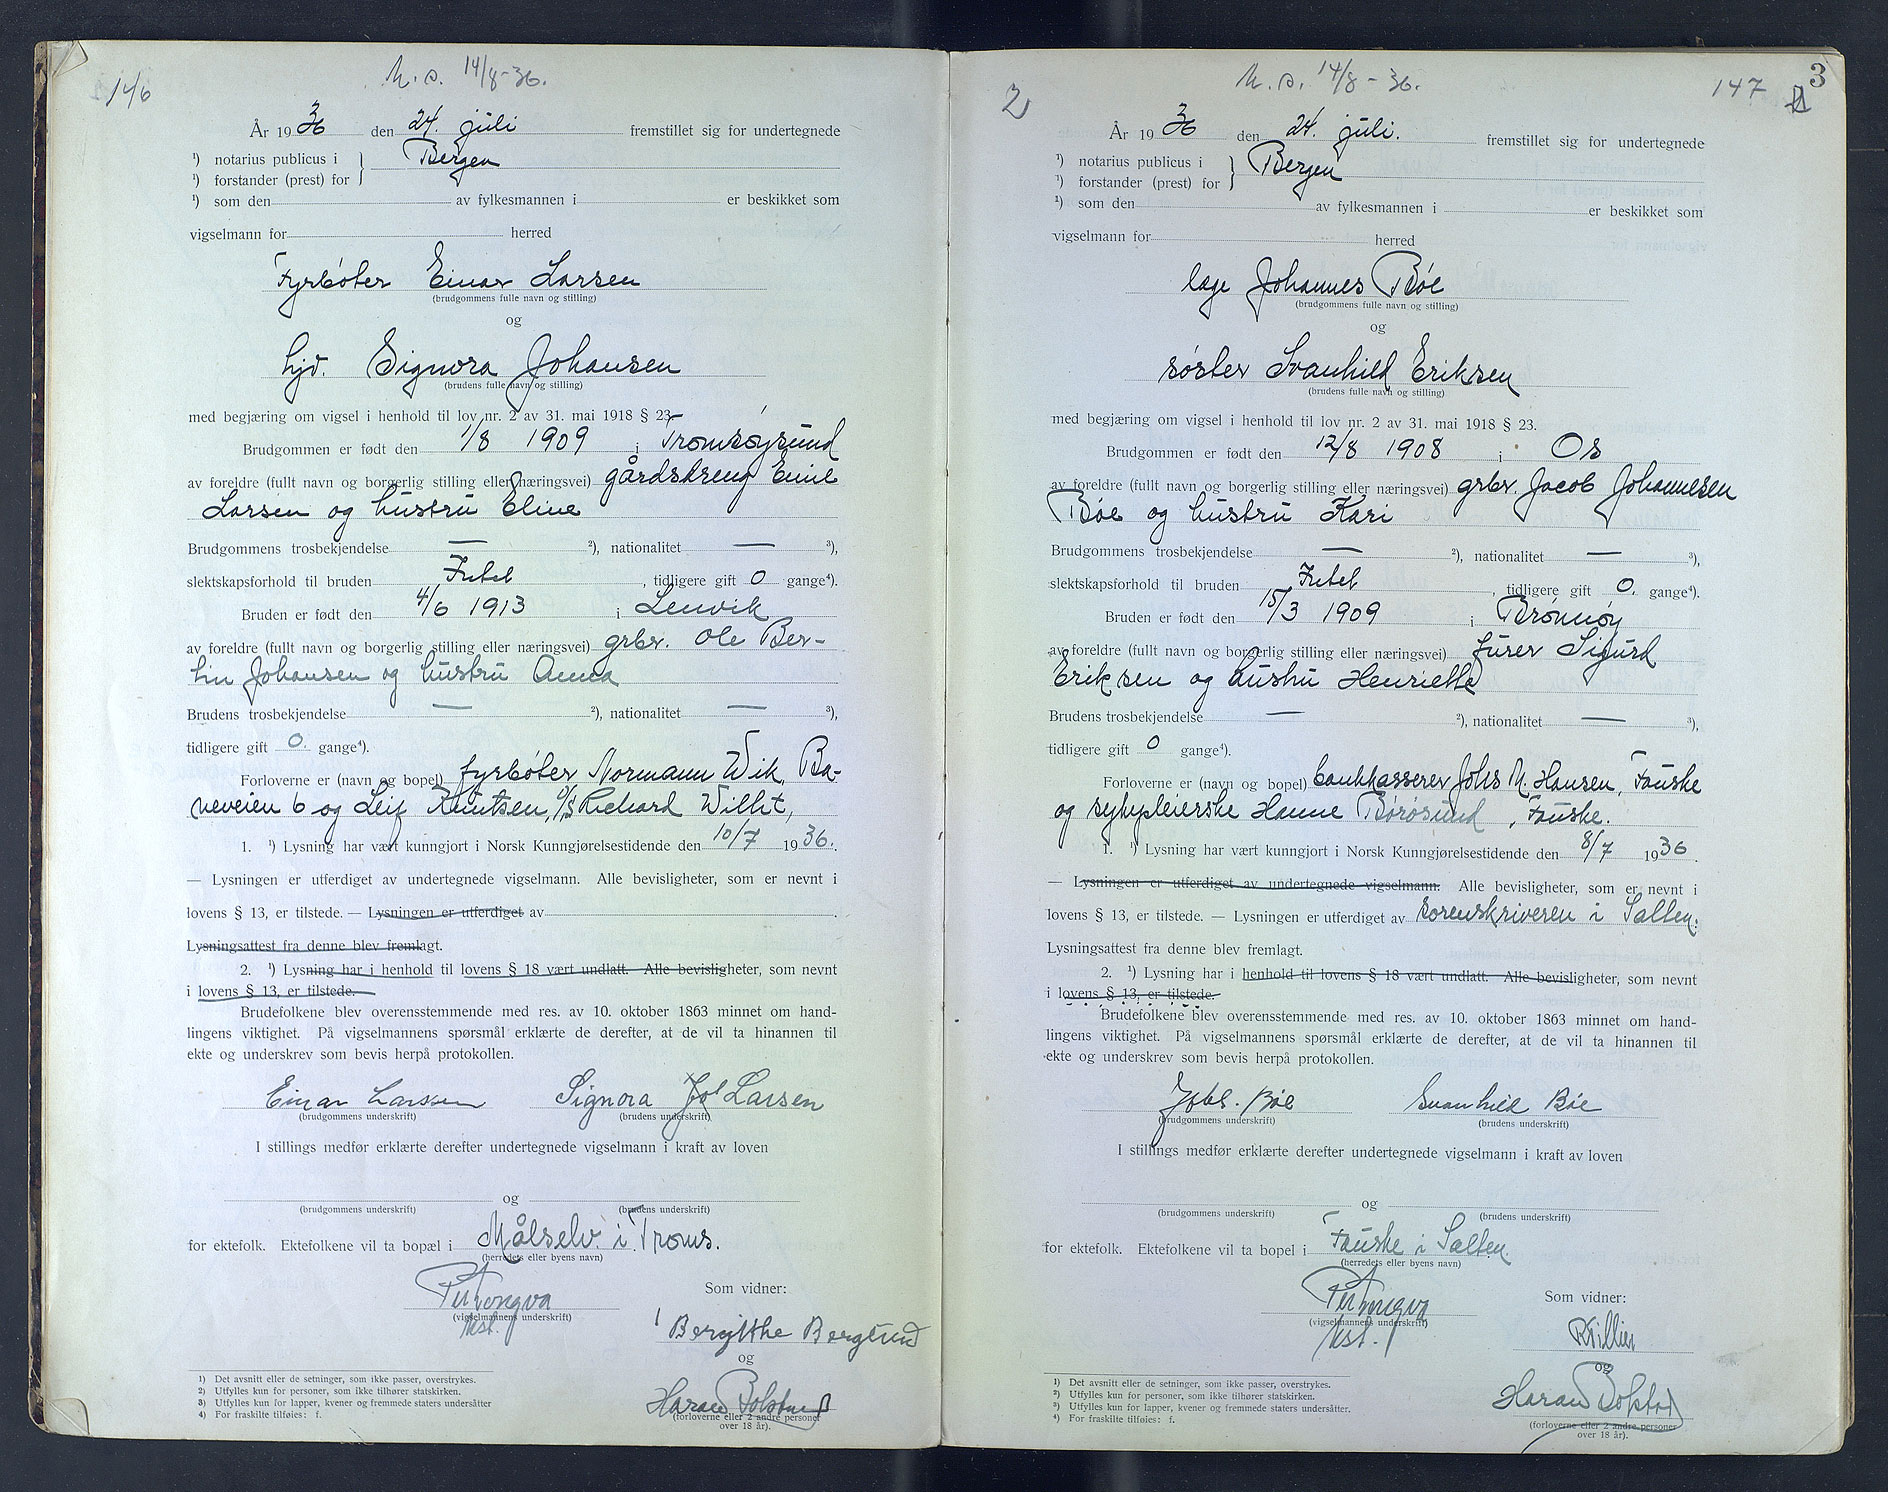 146
M. s. 14/8-36.
År 1936 den 24. juli fremstillet sig for undertegnede
¹) notarius publicus i } Bergen
¹) forstander (prest) for
¹) som den av fylkesmannen i er beskikket som
vigselmann for herred
Fyrbøter Einar Larsen
(brudgommens fulle navn og stilling)
og
hjv. Signora Johansen
(brudens fulle navn og stilling)
med begjæring om vigsel i henhold til lov nr. 2 av 31. mai 1918 § 23.
Brudgommen er født den 1/8 1909 i Tromsøysund
av foreldre (fullt navn og borgerlig stilling eller næringsvei) gårdsdreng Emil
Larsen og hustru Eline
Brudgommens trosbekjendelse — ²), nationalitet — ³),
slektskapsforhold til bruden Intet, tidligere gift 0 gange⁴).
Bruden er født den 4/6 1913 i Lenvik
av foreldre (fullt navn og borgerlig stilling eller næringsvei) grbr. Ole Ber-
tin Johansen og hustru Anna
Brudens trosbekjendelse — ²), nationalitet — ³),
tidligere gift 0. gange⁴).
Forloverne er (navn og bopel) fyrbøter Normann Wik, Ba-
neveien 6 og Leif Knutsen, d/s Richard Willit,
1. ¹) Lysning har vært kunngjort i Norsk Kunngjørelsestidende den 10/7 1936.
— Lysningen er utferdiget av undertegnede vigselmann. Alle bevisligheter, som er nevnt i
lovens § 13, er tilstede. — Lysningen er utferdiget av
Lysningsattest fra denne blev fremlagt.
2. ¹) Lysning har i henhold til lovens § 18 vært undlatt. Alle bevisligheter, som nevnt
i lovens § 13, er tilstede.
Brudefolkene blev overensstemmende med res. av 10. oktober 1863 minnet om hand-
lingens viktighet. På vigselmannens spørsmål erklærte de derefter, at de vil ta hinannen til
ekte og underskrev som bevis herpå protokollen.
Einar Larssen Signora Joh Larsen
(brudgommens underskrift) (brudens underskrift)
I stillings medfør erklærte derefter undertegnede vigselmann i kraft av loven
og
(brudgommens underskrift) (brudens underskrift)
for ektefolk. Ektefolkene vil ta bopæl i Målselv i Troms.
(herredets eller byens navn)
Som vidner:
(vigselmannens underskrift)
kst.
Bergithe Berglund
og
(forloverne eller 2 andre personer
over 18 år).
1) Det avsnitt eller de setninger, som ikke passer, overstrykes.
2) Utfylles kun for personer, som ikke tilhører statskirken.
3) Utfylles kun for lapper, kvener og fremmede staters undersåtter
4) For fraskilte tilføies: f.
2
M. s. 14/8-36.
147
3
År 1936 den 24. juli. fremstillet sig for undertegnede
¹) notarius publicus i } Bergen
¹) forstander (prest) for
¹) som den av fylkesmannen i er beskikket som
vigselmann for herred
læge Johannes Bøe
(brudgommens fulle navn og stilling)
og
søster Svanhild Eriksen
(brudens fulle navn og stilling)
med begjæring om vigsel i henhold til lov nr. 2 av 31. mai 1918 § 23.
Brudgommen er født den 12/8 1908 i Os
av foreldre (fullt navn og borgerlig stilling eller næringsvei) grbr. Jacob Johannesen
Bøe og hustru Kari
Brudgommens trosbekjendelse — ²), nationalitet — ³),
slektskapsforhold til bruden Intet, tidligere gift 0. gange⁴).
Bruden er født den 15/3 1909 i Brønnøy
av foreldre (fullt navn og borgerlig stilling eller næringsvei) furer Sigurd
Eriksen og hustru Henriette
Brudens trosbekjendelse — ²), nationalitet — ³),
tidligere gift 0 gange⁴).
Forloverne er (navn og bopel) bankkasserer Johs M. Hansen, Fauske
og sykepleierske Hanne Børøsund, Fauske.
1. ¹) Lysning har vært kunngjort i Norsk Kunngjørelsestidende den 8/7 1936.
— Lysningen er utferdiget av undertegnede vigselmann. Alle bevisligheter, som er nevnt i
lovens § 13, er tilstede. — Lysningen er utferdiget av sorenskriveren i Salten.
Lysningsattest fra denne blev fremlagt.
2. ¹) Lysning har i henhold til lovens § 18 vært undlatt. Alle bevisligheter, som nevnt
i lovens § 13, er tilstede.
Brudefolkene blev overensstemmende med res. av 10. oktober 1863 minnet om hand-
lingens viktighet. På vigselmannens spørsmål erklærte de derefter, at de vil ta hinannen til
ekte og underskrev som bevis herpå protokollen.
Johs. Bøe Svanhild Bøe
(brudgommens underskrift) (brudens underskrift)
I stillings medfør erklærte derefter undertegnede vigselmann i kraft av loven
og
(brudgommens underskrift) (brudens underskrift)
for ektefolk. Ektefolkene vil ta bopel i Fauske i Salten.
(herredets eller byens navn)
Som vidner:
(vigselmannens underskrift)
kst.
og
(forloverne eller 2 andre personer
over 18 år).
1) Det avsnitt eller de setninger, som ikke passer, overstrykes.
2) Utfylles kun for personer, som ikke tilhører statskirken.
3) Utfylles kun for lapper, kvener og fremmede staters undersåtter.
4) For fraskilte tilføies: f.